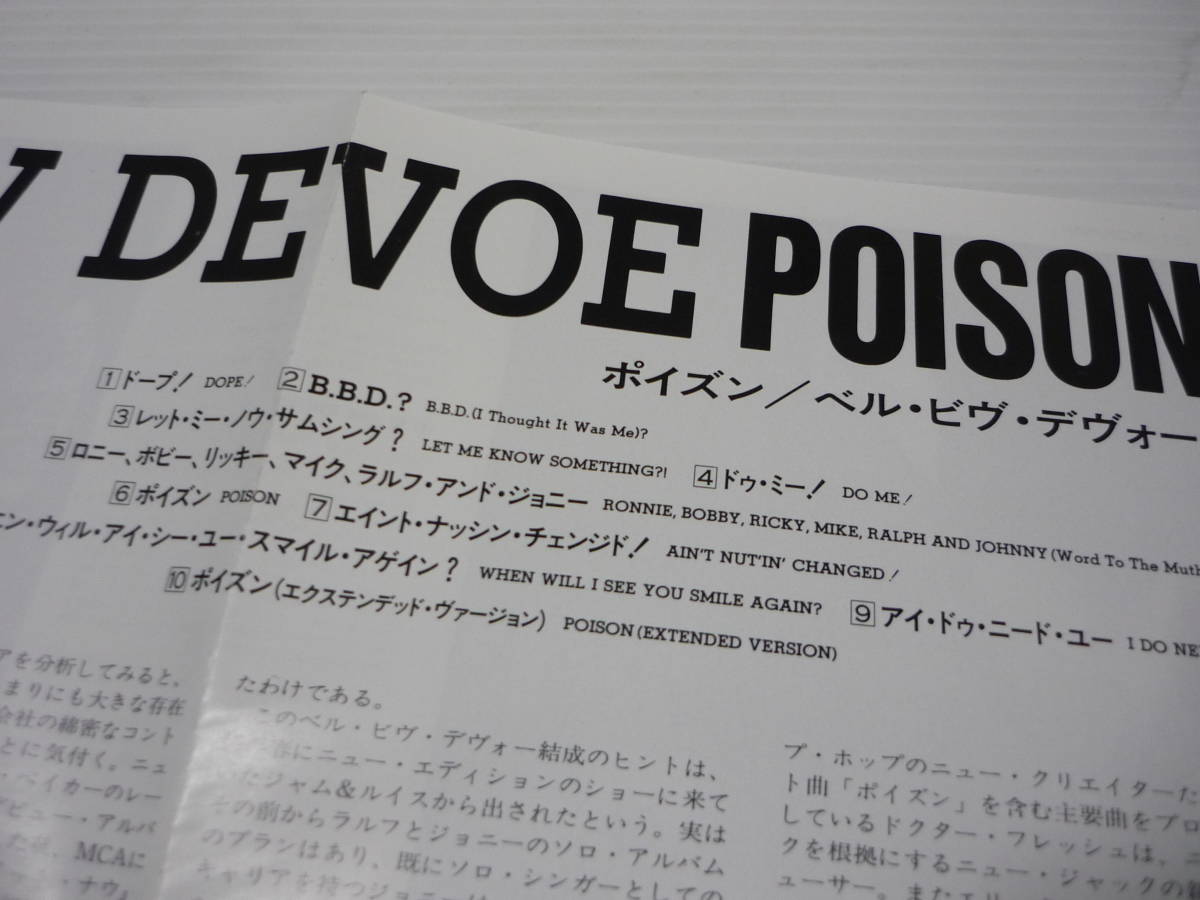 DEVOE POISON
ポイズン／ベル・ビヴ・デヴォー
1 ドープ! DOPE! 2 B.B.D.? B.B.D.(I Thought It Was Me)?
3 レット・ミー・ノウ・サムシング? LET ME KNOW SOMETHING?! 4 ドゥ・ミー! DO ME!
5 ロニー、ボビー、リッキー、マイク、ラルフ・アンド・ジョニー RONNIE, BOBBY, RICKY, MIKE, RALPH AND JOHNNY (Word To The Muth
6 ポイズン POISON 7 エイント・ナッシン・チェンジド! AIN'T NUT'IN' CHANGED!
エン・ウィル・アイ・シー・ユー・スマイル・アゲイン? WHEN WILL I SEE YOU SMILE AGAIN? 9 アイ・ドゥ・ニード・ユー I DO NE
10 ポイズン(エクステンデッド・ヴァージョン) POISON (EXTENDED VERSION)
アを分析してみると、
まりにも大きな存在
会社の綿密なコント
とに気付く。ニュ
・ベイカーのレー
デビュー・アルバ
MCAに
ナウ』
たわけである。
このベル・ビヴ・デヴォー結成のヒントは、
春にニュー・エディションのショーに来て
いたジャム&ルイスから出されたという。実は
その前からラルフとジョニーのソロ・アルバム
のプランはあり、既にソロ・シンガーとしての
キャリアを持つジョニー
プ・ホップのニュー・クリエイターた
ト曲「ポイズン」を含む主要曲をプロ
しているドクター・フレッシュは、ニ
クを根拠にするニュー・ジャックの
ューサー。またエリ